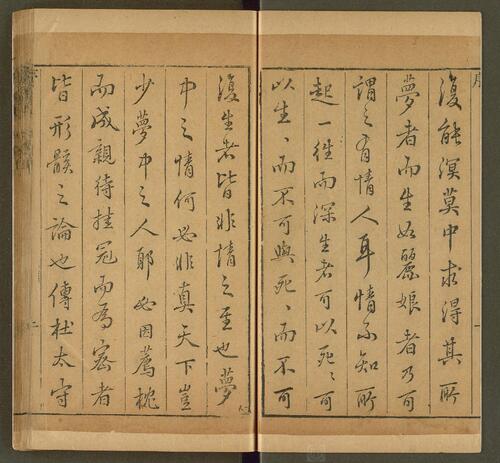 序
復能溟莫中求得其所
夢者而生如麗娘者乃可
謂之有情人耳情不知所
起一往而深生者可以死〻可
以生〻而不可與死〻而不可
一
復生者皆非情之至也夢
中之情何必非真天下豈
少夢中之人耶必因薦枕
而成親待挂冠而為密者
皆形骸之論也傳杜太守
二